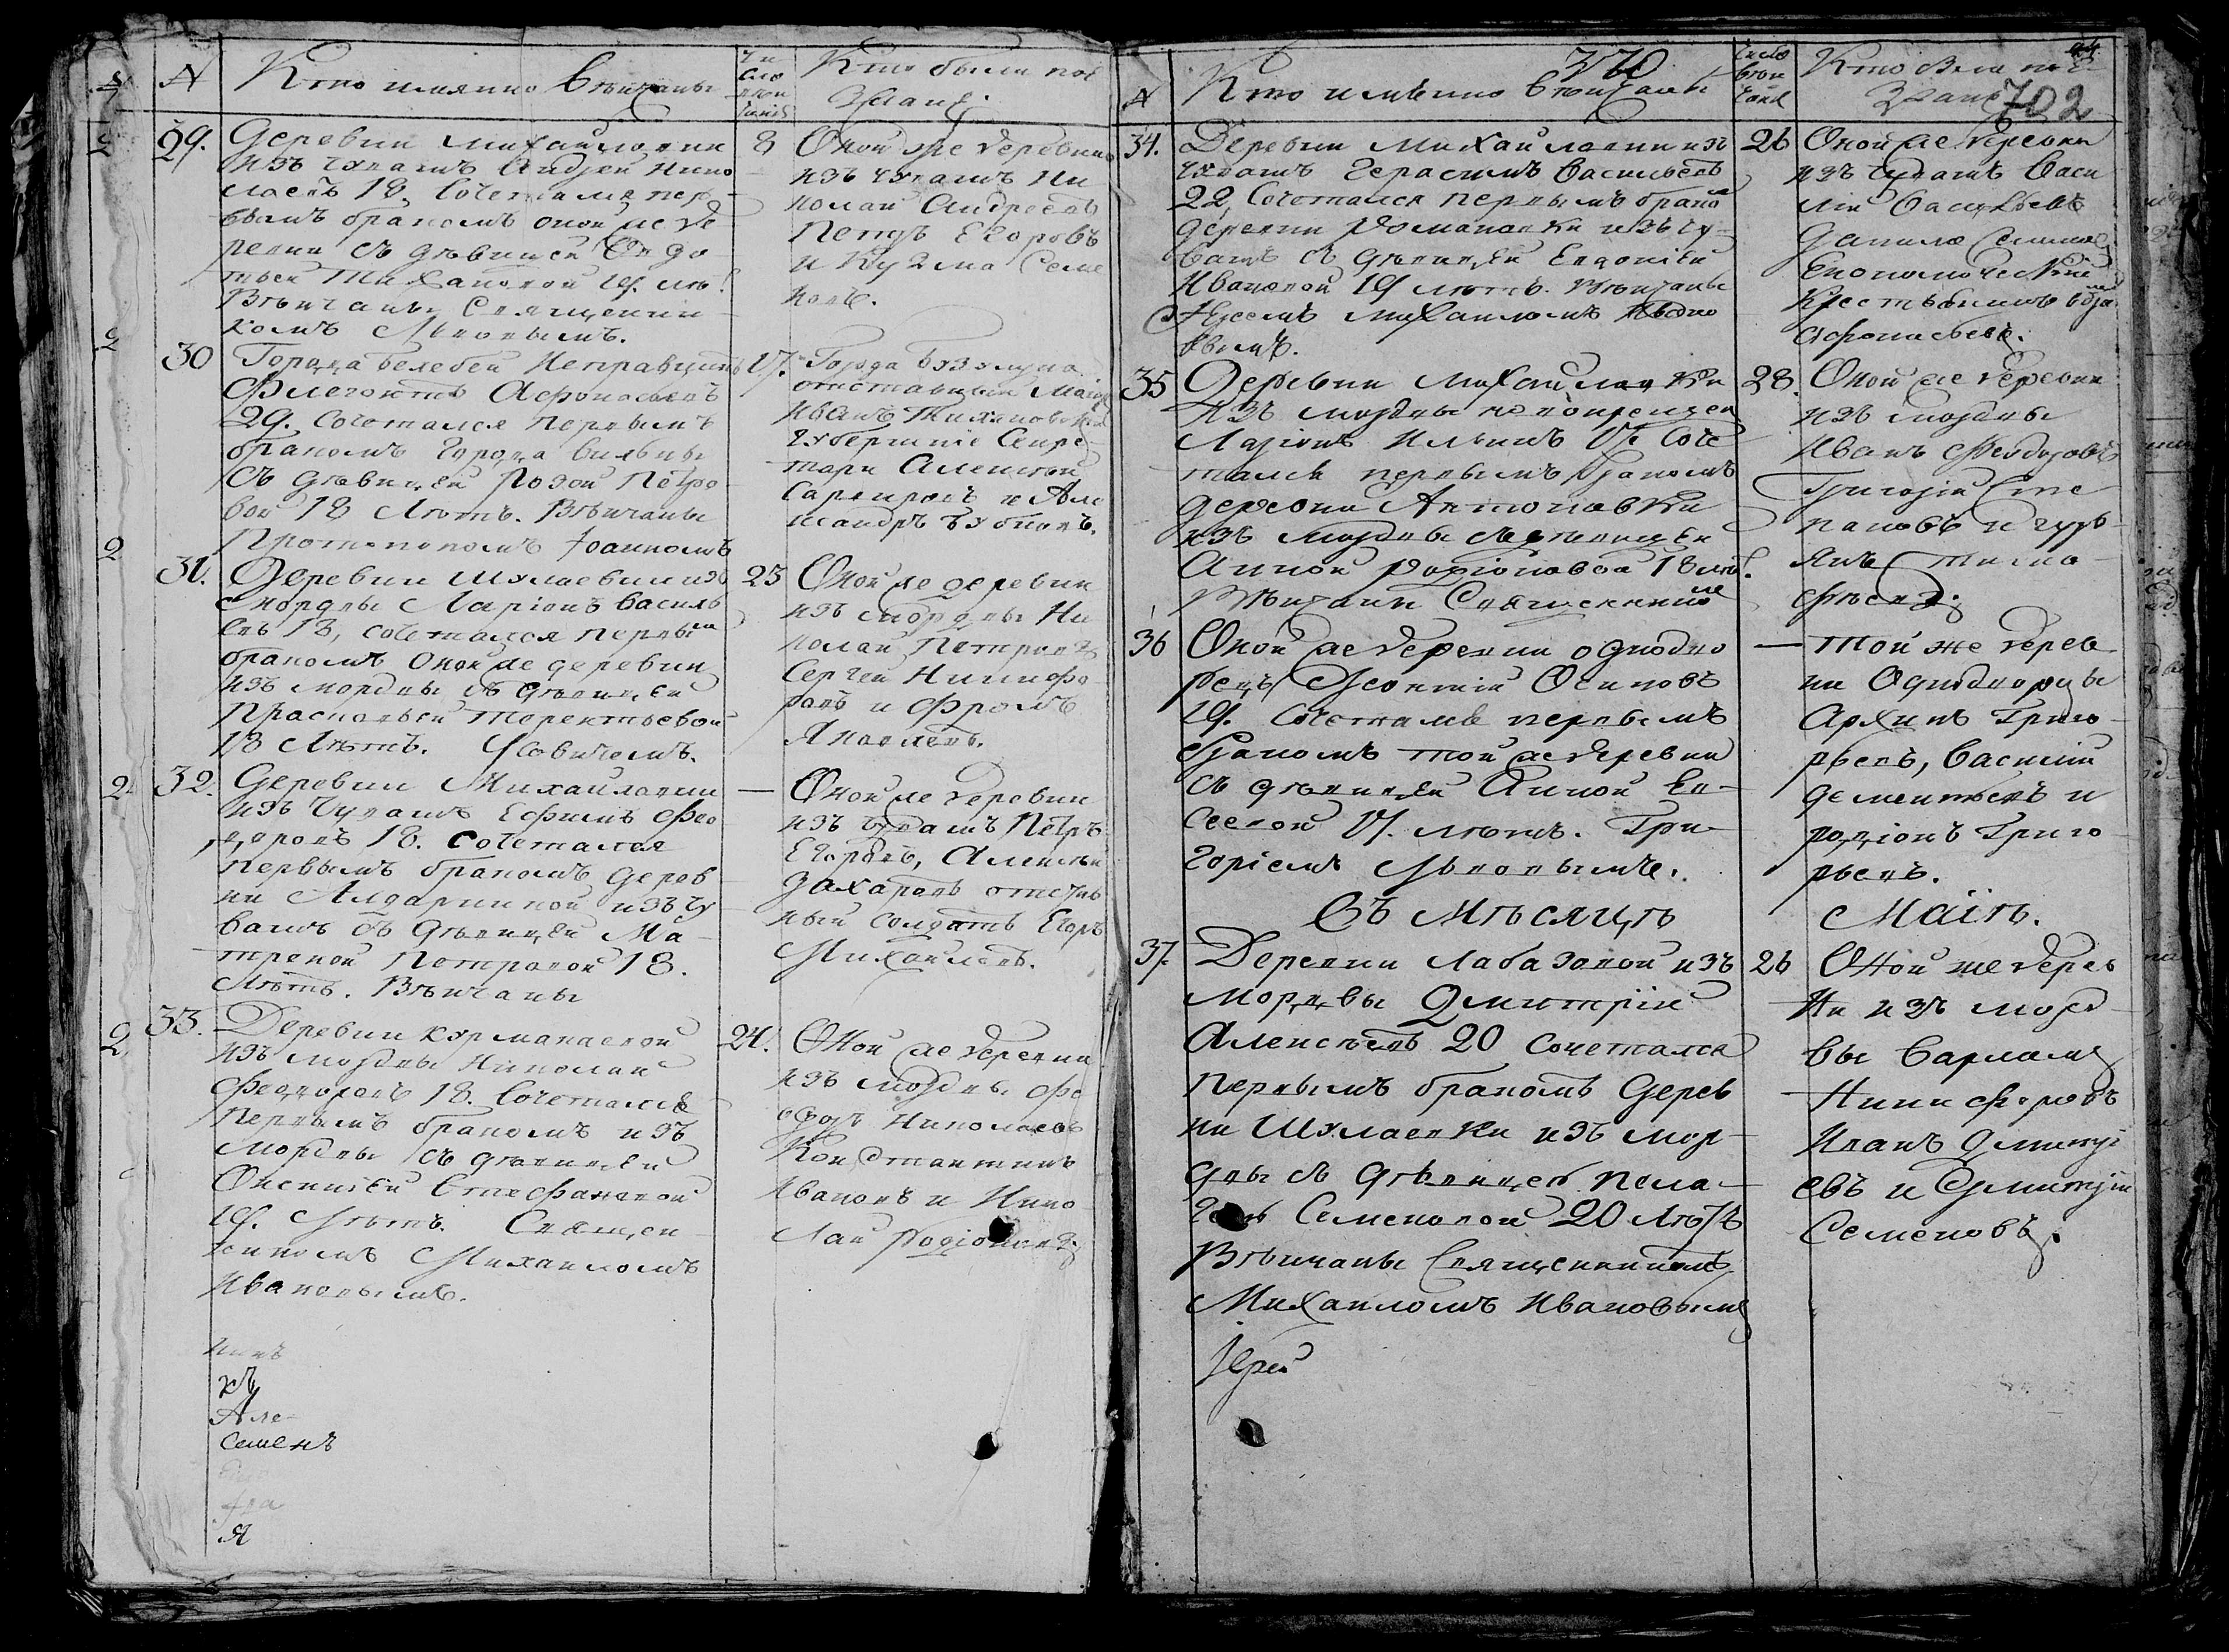 №
Кто имянно Венчаны
Чи
сло
вен
чанiя
Кто были поѣ
зжане.
29.
Деревни Михайловки
изъ чувашъ Андрей Нико
лаевъ 18. Сочетался пер
вымъ бракомъ оной же де
ревни съ дѣвицей Евдо
Вѣнчаны Священни
комъ Львовымъ.
8
Оной же деревни
изъ чувашъ Ни
колай Андреевъ
Петръ Егоровъ
и Кузма Семе
новъ.
30
Города Белебея
29. Сочетался первымъ
бракомъ города
съ дѣвицей Розой Петро
вой 18 Лѣтъ. Вѣнчаны
Протопопомъ Iоанномъ
17.
Города Бузулука
отставный
Иванъ
Губернскiе Секре
тари Алексей
и Але
ксандръ
31.
Деревни Шулаевки изъ
мордвы Ларiонъ Василь
евъ 18, сочетался первым
бракомъ Оной же деревни
изъ мордвы съ дѣвицей
Прасковьей Терентьевой
18 Лѣтъ.
23
Оной же деревни
изъ мордвы Ни
колай Петровъ
Сергей Никифо
ровъ и Фролъ
Яковлевъ.
32.
Деревни Михайловки
изъ Чувашъ Ефимъ Фео
доровъ 18. Сочетался
первымъ бракомъ дерев
ни Алдаркиной изъ чу
вашъ съ дѣвицей Ма
треной Петровой 18.
Лѣтъ. Вѣнчаны
—
Оной же деревни
изъ чувашъ Петръ
Егоровъ, Алексѣй
Захаровъ отстав
ный солдатъ Егоръ
Михайловъ.
33.
Деревни Курманаевой
изъ мордвы Николай
Феодоровъ 18. Сочетался
Первымъ бракомъ изъ
мордвы съ дѣвицей
Оксинiей Стефановой
19. Лѣтъ. Священ
никомъ Михаиломъ
Ивановымъ.
24.
Оной же деревни
изъ мордвы Фе
одоръ Николаевъ
Константинъ
Ивановъ и Нико
лай Родiоновъ
Але
Семенъ
я
№
370
Кто имѣнно Вѣнчаны
Число
вен
чанiя
Кто были поѣ
зжане
702
34.
Деревни Михайловки изъ
чувашъ Герасимъ Васильевъ
22, Сочетался первымъ брако
деревни Романовки изъ чу
вашъ съ дѣвицей Евдокiей
Ивановой 19 лѣтъ. Вѣнчаны
Iереемъ Михаиломъ
26
Оной же деревни
изъ чувашъ Васи
лiй Васильевъ
Данило
Економическiй
Крестьянинъ
Афонасьевъ.
35
Деревни Михайловки
изъ мордвы новокрещен
Ларiонъ Ильинъ 17 Соче
тался первымъ бракомъ
деревни Антоновки
изъ мордвы съ дѣвицей
Анной Родiоновой 18 лѣт.
Вѣнчаны Священником
28.
Оной же деревни
изъ мордвы
Иванъ Феодоровъ
Григорiй Сте
пановъ и Гурь
янъ Тимо
фѣевъ.
36
Оной же деревни однодво
рецъ Леонтiй Осиповъ
19. Сочетался первымъ
бракомъ той же деревни
съ дѣвицей Анной Ев
сеевой 17. лѣтъ. Гри
горiемъ Львовымъ.
—
Той же дерев
ни Однодворцы
Архипъ Григо
рьевъ, Василiй
Дементьевъ и
Родiонъ Григо
рьевъ.
Въ Мѣсяцѣ
Маiѣ.
37.
Деревни Лабазовой изъ
мордвы Дмитрiй
Алексѣевъ 20 Сочетался
первымъ бракомъ дерев
ни Шулаевки изъ мор
двы съ дѣвицей Пела
геей Семеновой 20 Лѣтъ
Вѣнчаны Священникомъ
Михаиломъ Ивановымъ
Iерей
26
Оной же дерев
ни изъ морд
вы Варламъ
Никифоровъ
Иванъ Дмитрi
евъ и Дмитрiй
Семеновъ.